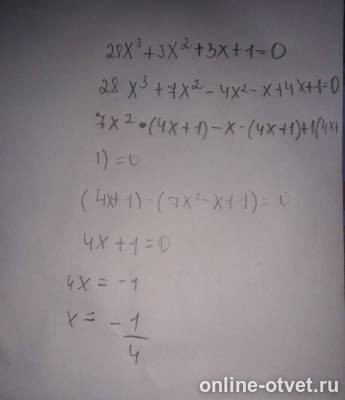 28x³+3x²+3x+1=0
28x³+7x²-4x²-x+4x+1=0
7x²•(4x+1)-x·(4x+1)+1(4x+
1)=0
(4x+1)·(7x²-x+1)=0
4x+1=0
4x=-1
x=-1/4
online-otvet.ru